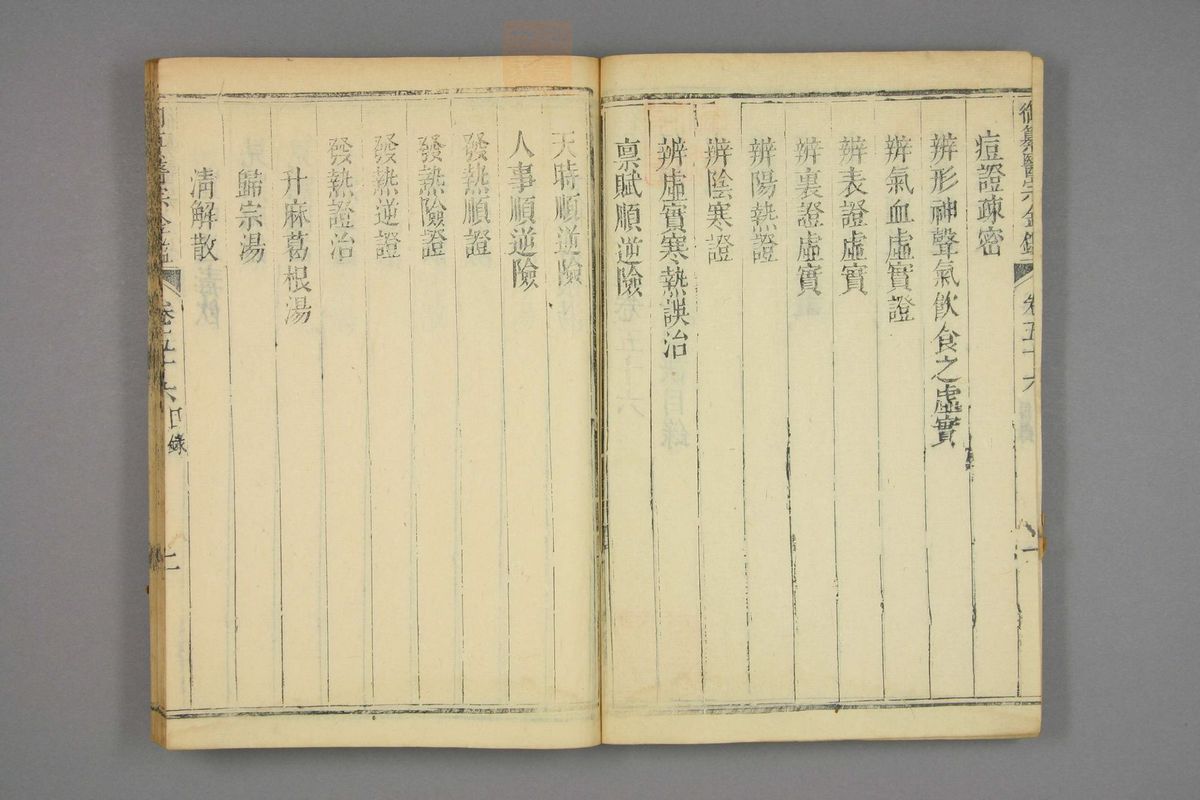 御纂醫宗金鑑 卷五十六
痘證疎密
辨形神聲氣飲食之虛實
辨氣血虛實證
辨表證虛實
辨裏證虛實
辨陽熱證
辨陰寒證
辨虛實寒熱誤治
稟賦順逆險
天時順逆險
人事順逆險
發熱順證
發熱險證
發熱逆證
發熱證治
升麻葛根湯
歸宗湯
清解散
醫宗金鑑 卷五十六 目錄 二